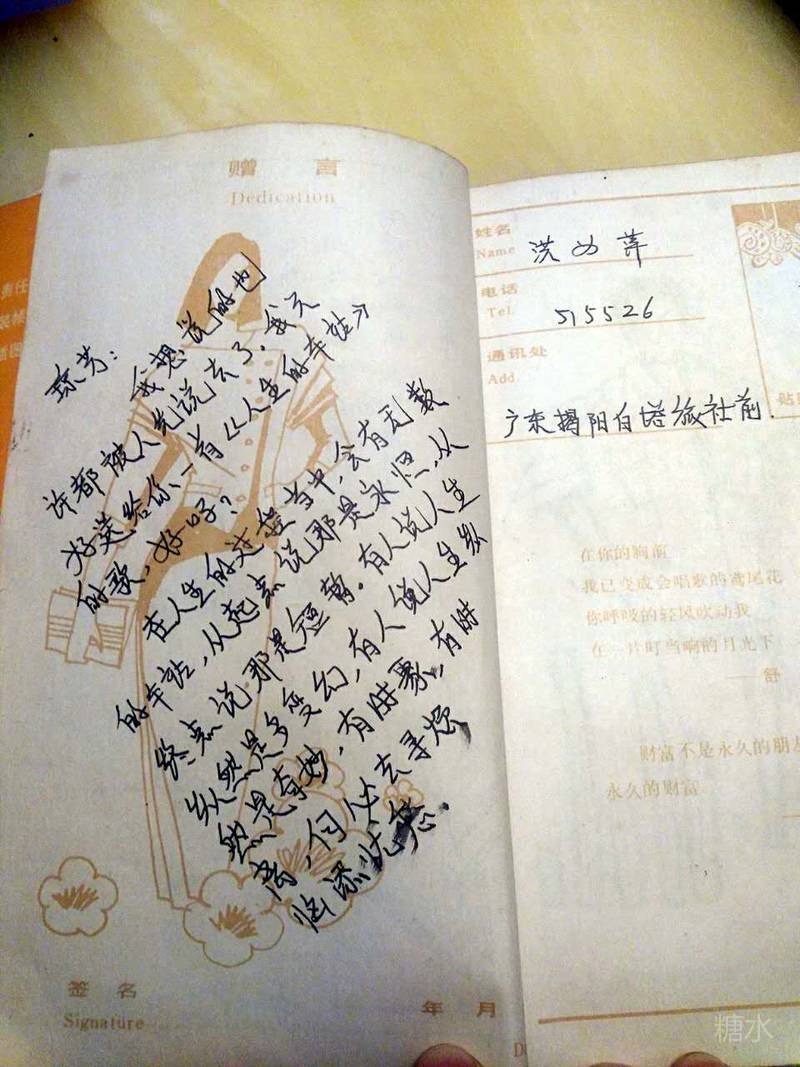 赠言
Dedication
琼芳：
我想说的也
许都被人先说去了，我只
好送给你一首《人生的车站》
的歌，好吗？
在人生的过程当中，会有无数
的车站，从起点说那是永恒，从
终点说那是短暂。有人说人生
纵然是多变幻，有人说人生纵
然是奇妙，有时聚，有时
离，何必去寻烦
恼添忧愁
签名
Signature
年 月
责任
装帧
插图
姓名
Name 洪如萍
电话
Tel. 515526
通讯处
Add.
广东揭阳白塔旅社前.
贴
在你的胸前
我已变成会唱歌的鸢尾花
你呼吸的轻风吹动我
在一片叮当响的月光下
——舒
财富不是永久的朋友
永久的财富
D
糖水